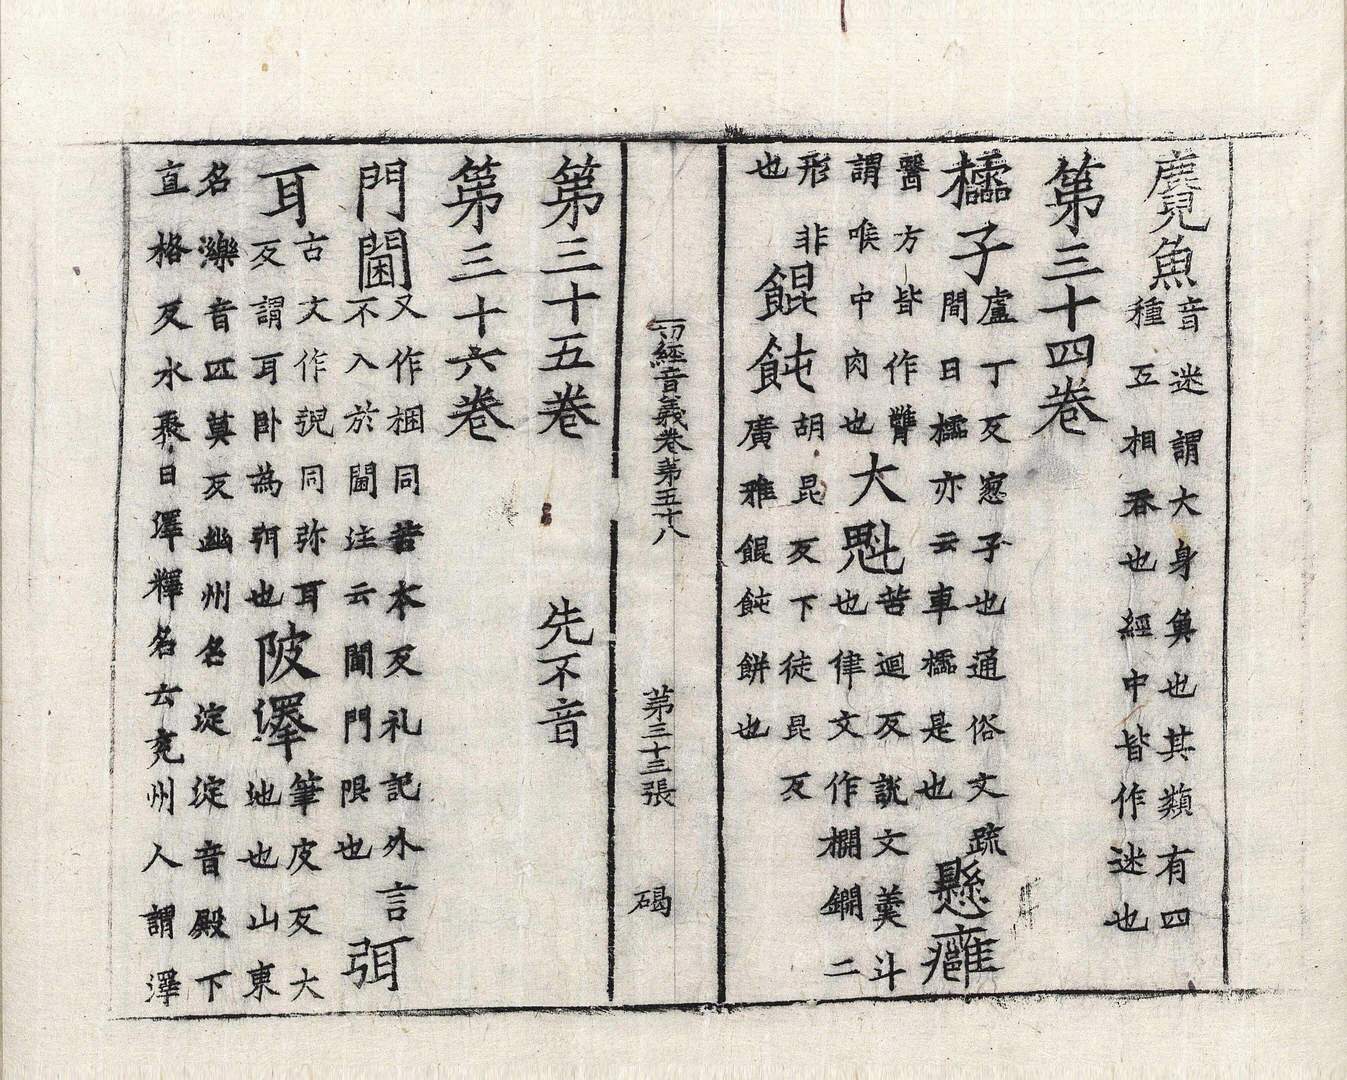 麑魚音迷謂大身魚也其類有四
種互相吞也經中皆作迷也
第三十四卷
櫺子盧丁反窻子也通俗文疏
間曰櫺亦云車櫺是也懸癰
醫方皆作
謂喉中肉也大魁苦迴反說文羹斗
也律文作櫚鐗二
形非
也餛飩胡昆反下徒昆反
廣雅餛飩餅也
一切經音義卷第五十八 第三十三張 碣
第三十五卷 先不音
第三十六卷
門閫又作梱同苦本反礼記外言
不入於閫注云閫門限也弭
耳古文作同弥耳
反謂耳卧為弭也陂澤筆皮反大
池也山東
名濼音匹莫反幽州名淀淀音殿下
直格反水聚曰澤釋名云兖州人謂澤